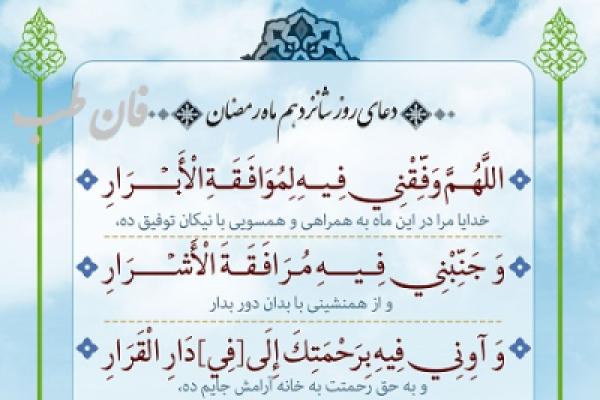 دعای روز شانزدهم ماه رمضان
فان طب
اللَّهُمَّ وَفِّقْنِي فِيهِ لِمُوَافَقَةِ الْأَبْرَارِ
خدایا مرا در این ماه به همراهی و همسویی با نیکان توفیق ده،
وَ جَنِّبْنِي فِيهِ مُرَافَقَةَ الْأَشْرَارِ
و از همنشینی با بدان دور بدار
وَ آوِنِي فِيهِ بِرَحْمَتِكَ إِلَى [فِي] دَارِ الْقَرَارِ
و به حق رحمتت به خانه آرامش جایم ده،